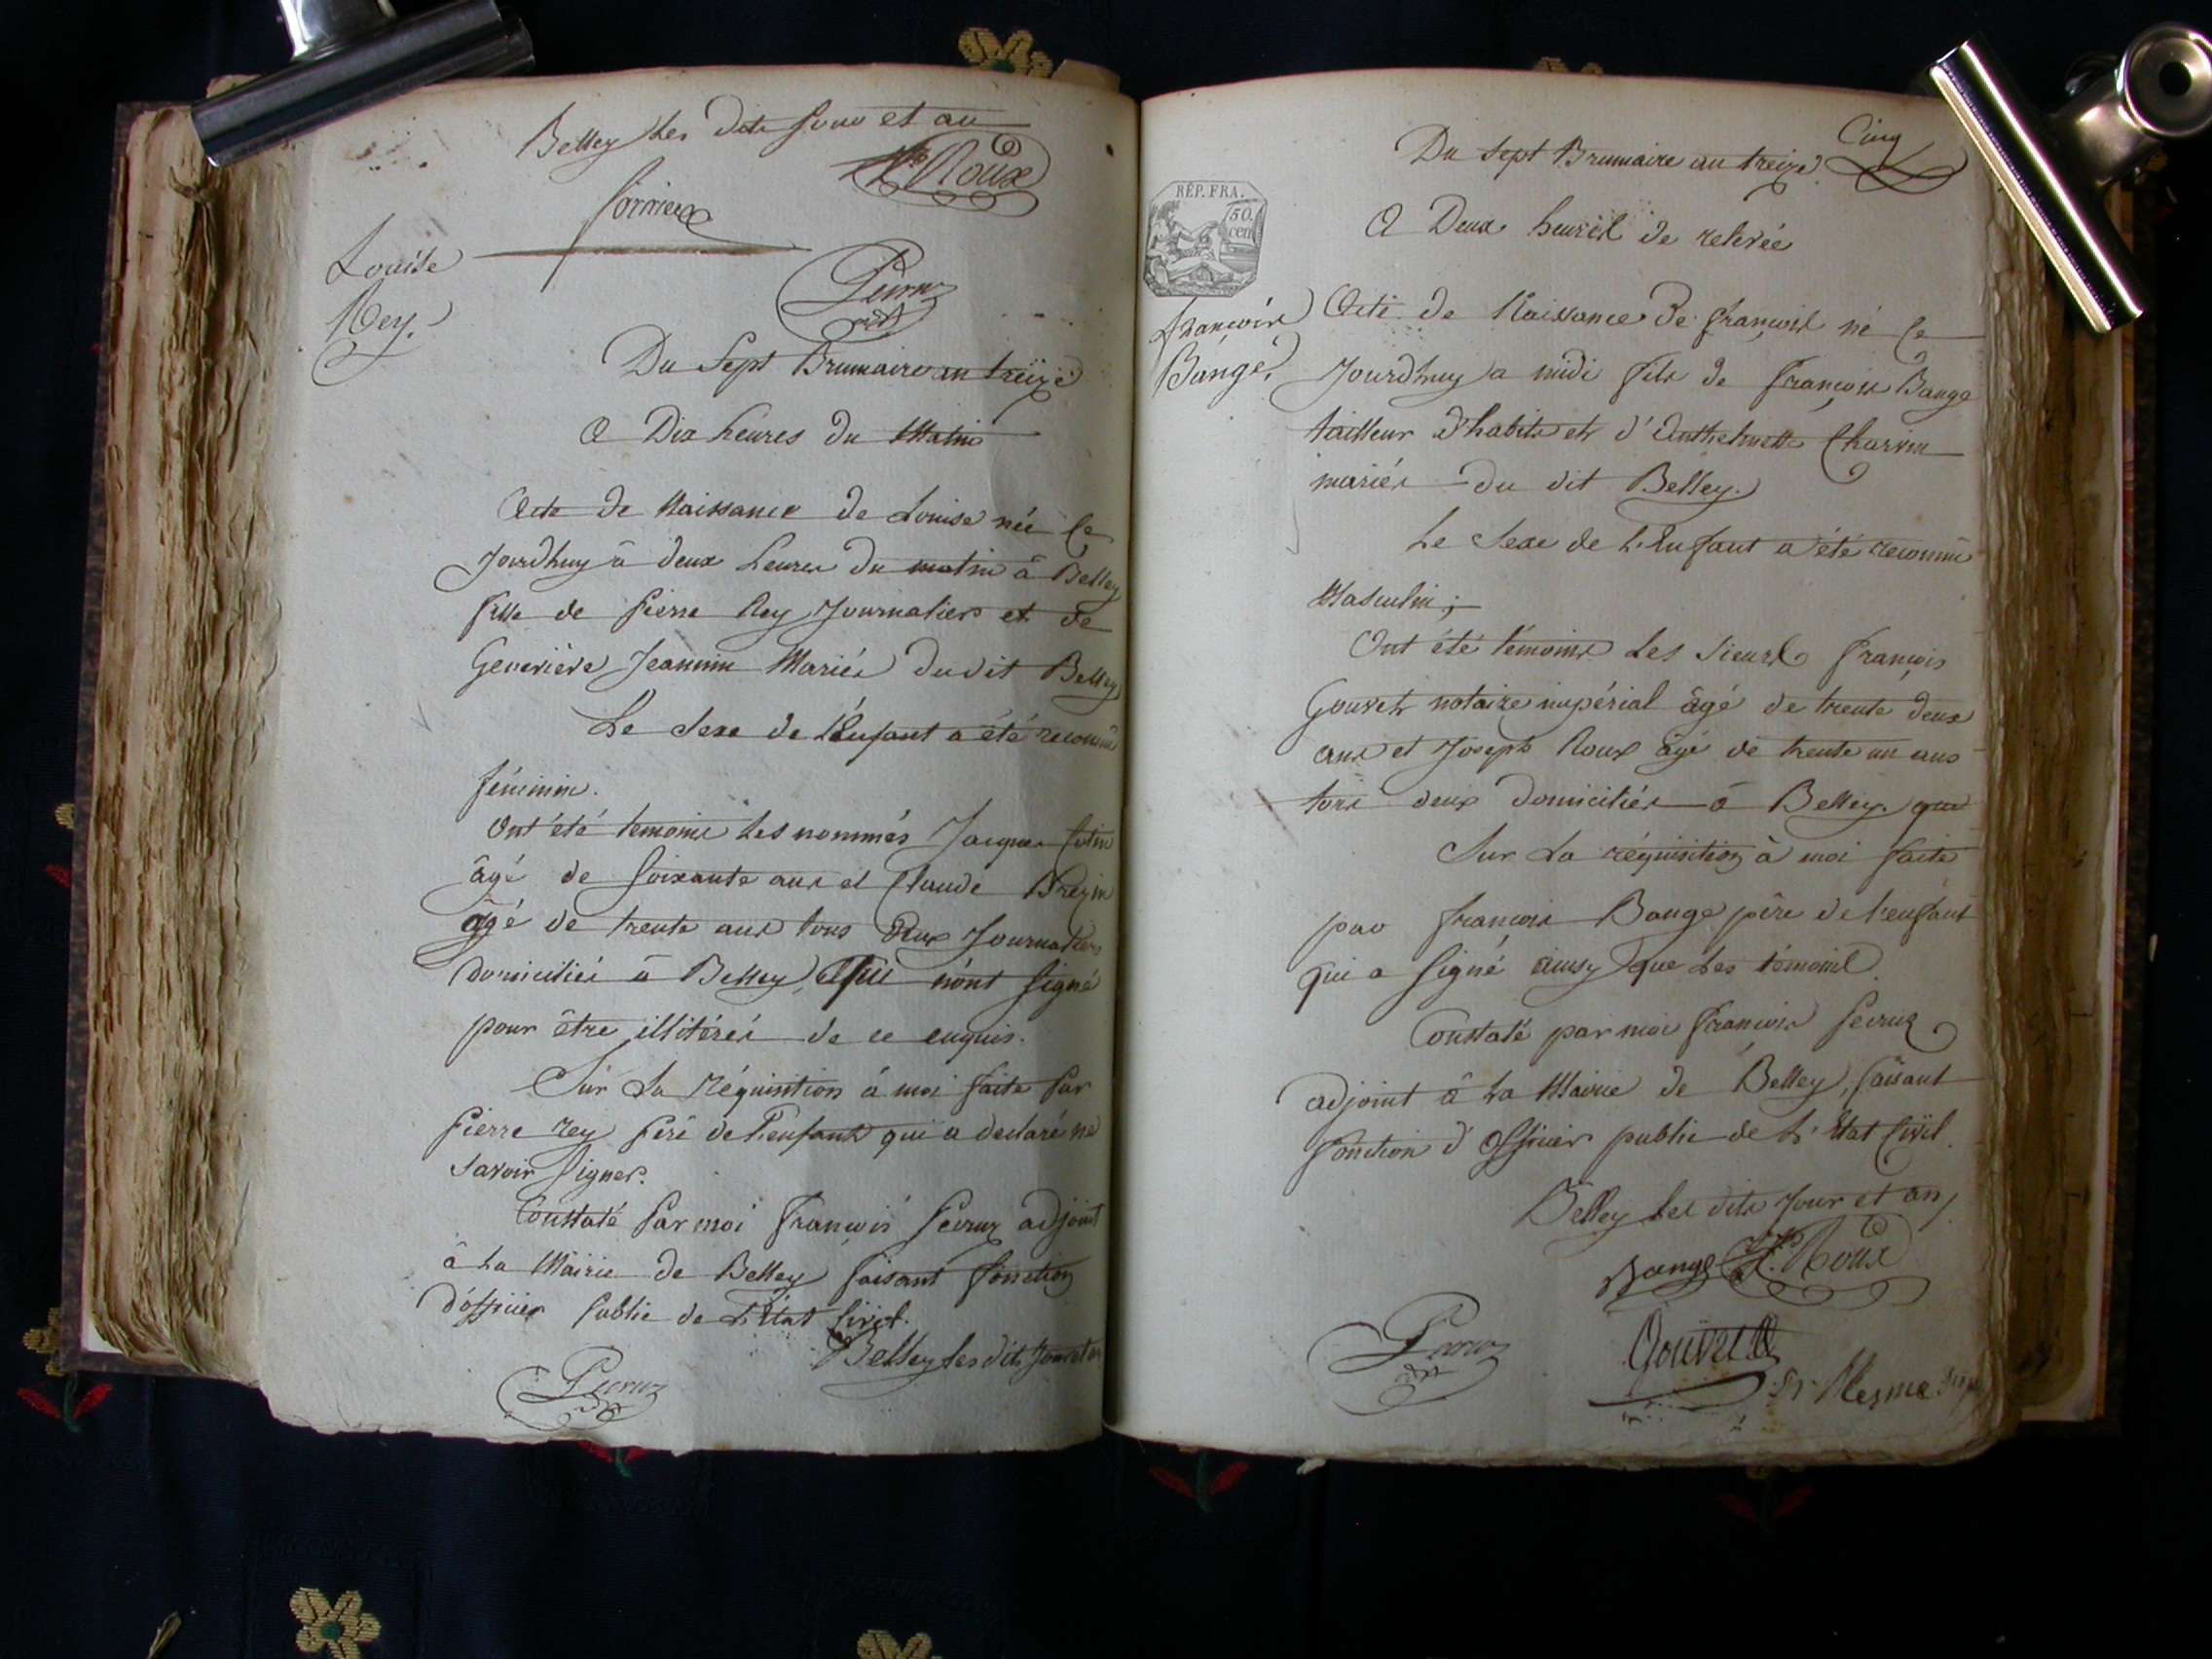 Belley Les Dits Jour et an
Jh Roux
Louise
Rey.
Du Sept Brumaire an treize
A Dix heures du Matin
Acte de Naissance de Louise née Ce
Jourdhuy à deux heures du matin à Belley
fille de Pierre Rey Journalier et de
Geneviève Jeannin Mariés dudit Belley
Le Sexe de l'Enfant a été reconnu
féminin.
Ont été temoins Les nommés Jacques
âgé de Soixante ans et Claude
âgé de trente ans tous Deux Journaliers
domiciliés à Belley, Qui n'ont Signé
pour être illitérés de ce enquis.
Sur La Réquisition à moi faite Par
Pierre Rey Père de l'enfant qui a declaré ne
Savoir Signer.
Constaté Par moi François Peyruz adjoint
à La Mairie de Belley faisant fonction
d'officier Public de L'État Civil.
Belley Les dits Jour et an
Cinq
Du Sept Brumaire an treize
A Deux heures de relevée
RÉP. FRA.
50.
cen
François
Bange.
Acte de Naissance De François né Ce
Jourdhuy a midi fils de François Bange
tailleur d'habits et d'Anthelmette Charvin
mariés du dit Belley.
Le Sexe de L'Enfant a été reconnu
Masculin ;
Ont été témoins Les Sieurs François
Gouvet notaire impérial âgé de trente deux
ans et Joseph Roux âgé de trente un ans
tous deux domiciliés à Belley. que
Sur La réquisition à moi faite
par François Bange père de l'enfant
qui a Signé ainsy que Les témoins.
Constaté par moi François Peyruz
adjoint à La Mairie de Belley, faisant
fonction d'Officier public de L'État Civil.
Belley Les dits Jour et an,
Bange Jh. Roux
Gouvet